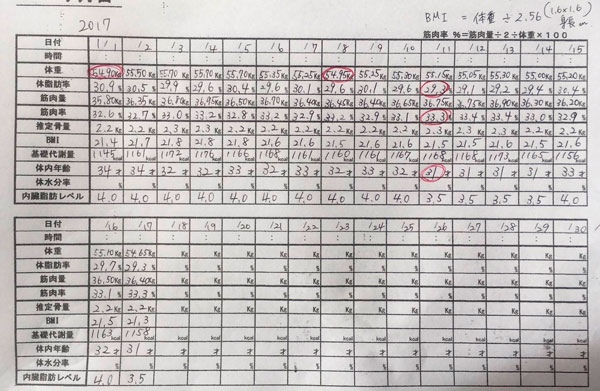 2017
BMI = 体重 ÷ 2.56 (1.6×1.6) 身長 m
筋肉率 %=筋肉量÷2÷体重×100
日付 1/1 1/2 1/3 1/4 1/5 1/6 1/7 1/8 1/9 1/10 1/11 1/12 1/13 1/14 1/15
時間 : : : : : : : : : : : : : : :
体重 54.90Kg 55.50Kg 55.70Kg 55.70Kg 55.70Kg 55.35Kg 55.25Kg 54.95Kg 55.25Kg 55.30Kg 55.15Kg 55.05Kg 55.30Kg 55.00Kg 55.20Kg
体脂肪率 30.9% 30.5% 29.9% 29.6% 30.4% 29.6% 30.1% 29.6% 30.1% 29.6% 29.3% 29.1% 29.2% 29.4% 30.4%
筋肉量 35.80Kg 36.35Kg 36.80Kg 36.95Kg 36.50Kg 36.70Kg 36.40Kg 36.45Kg 36.40Kg 36.65Kg 36.75Kg 36.75Kg 36.90Kg 36.30Kg 36.20Kg
筋肉率 32.6% 32.7% 33.0% 33.2% 32.8% 33.2% 32.9% 33.2% 32.9% 33.1% 33.3% 33.4% 33.4% 33.0% 32.9%
推定骨量 2.2Kg 2.2Kg 2.3Kg 2.3Kg 2.2Kg 2.2Kg 2.2Kg 2.2Kg 2.2Kg 2.2Kg 2.3Kg 2.2Kg 2.3Kg 2.2Kg 2.2Kg
BMI 21.4 21.7 21.8 21.8 21.8 21.6 21.6 21.5 21.6 21.6 21.5 21.5 21.6 21.5 21.6
基礎代謝量 1145kcal 1161kcal 1172kcal 1176kcal 1166kcal 1168kcal 1160kcal 1161kcal 1167kcal 1168kcal 1168kcal 1173kcal 1165kcal 1156kcal
体内年齢 34才 34才 32才 32才 33才 32才 33才 32才 33才 32才 31才 31才 31才 31才 33才
体水分率 % % % % % % % % % % % % % % %
内臓脂肪レベル 4.0 4.0 4.0 4.0 4.0 4.0 4.0 4.0 4.0 4.0 3.5 3.5 3.5 3.5 4.0
日付 1/16 1/17 1/18 1/19 1/20 1/21 1/22 1/23 1/24 1/25 1/26 1/27 1/28 1/29 1/30
時間 : : : : : : : : : : : : : : :
体重 55.10Kg 54.65Kg Kg Kg Kg Kg Kg Kg Kg Kg Kg Kg Kg Kg Kg
体脂肪率 29.7% 29.3% % % % % % % % % % % % % %
筋肉量 36.50Kg 36.40Kg Kg Kg Kg Kg Kg Kg Kg Kg Kg Kg Kg Kg Kg
筋肉率 33.1% 33.3% % % % % % % % % % % % % %
推定骨量 2.2Kg 2.2Kg Kg Kg Kg Kg Kg Kg Kg Kg Kg Kg Kg Kg Kg
BMI 21.5 21.3
基礎代謝量 1163kcal 1158kcal kcal kcal kcal kcal kcal kcal kcal kcal kcal kcal kcal kcal kcal
体内年齢 32才 31才 才 才 才 才 才 才 才 才 才 才 才 才 才
体水分率 % % % % % % % % % % % % % % %
内臓脂肪レベル 4.0 3.5